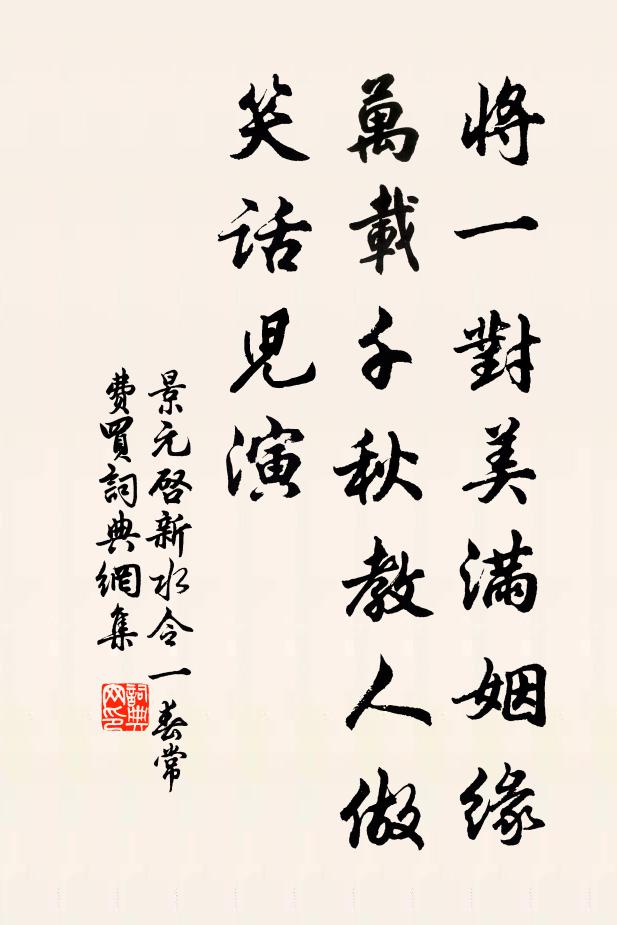 將一對美滿姻緣
萬載千秋教人做
笑話児演
景元啓新水令一春常
費買詞典網集
詞典
网印